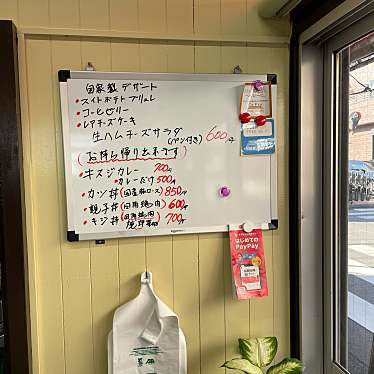 自家製デザート
・スイトポテトブリュレ
・コーヒーゼリー
・レアチーズケーキ
生ハムチーズサラダ
(パン付き) 600円
(お持ち帰り出来ます)
・キスジカレー 700円
・カレーだけ 500円
・カツ丼(国産豚ロース) 850円
・親子丼 600円
・キジ丼 700円
はじめての
PayPay